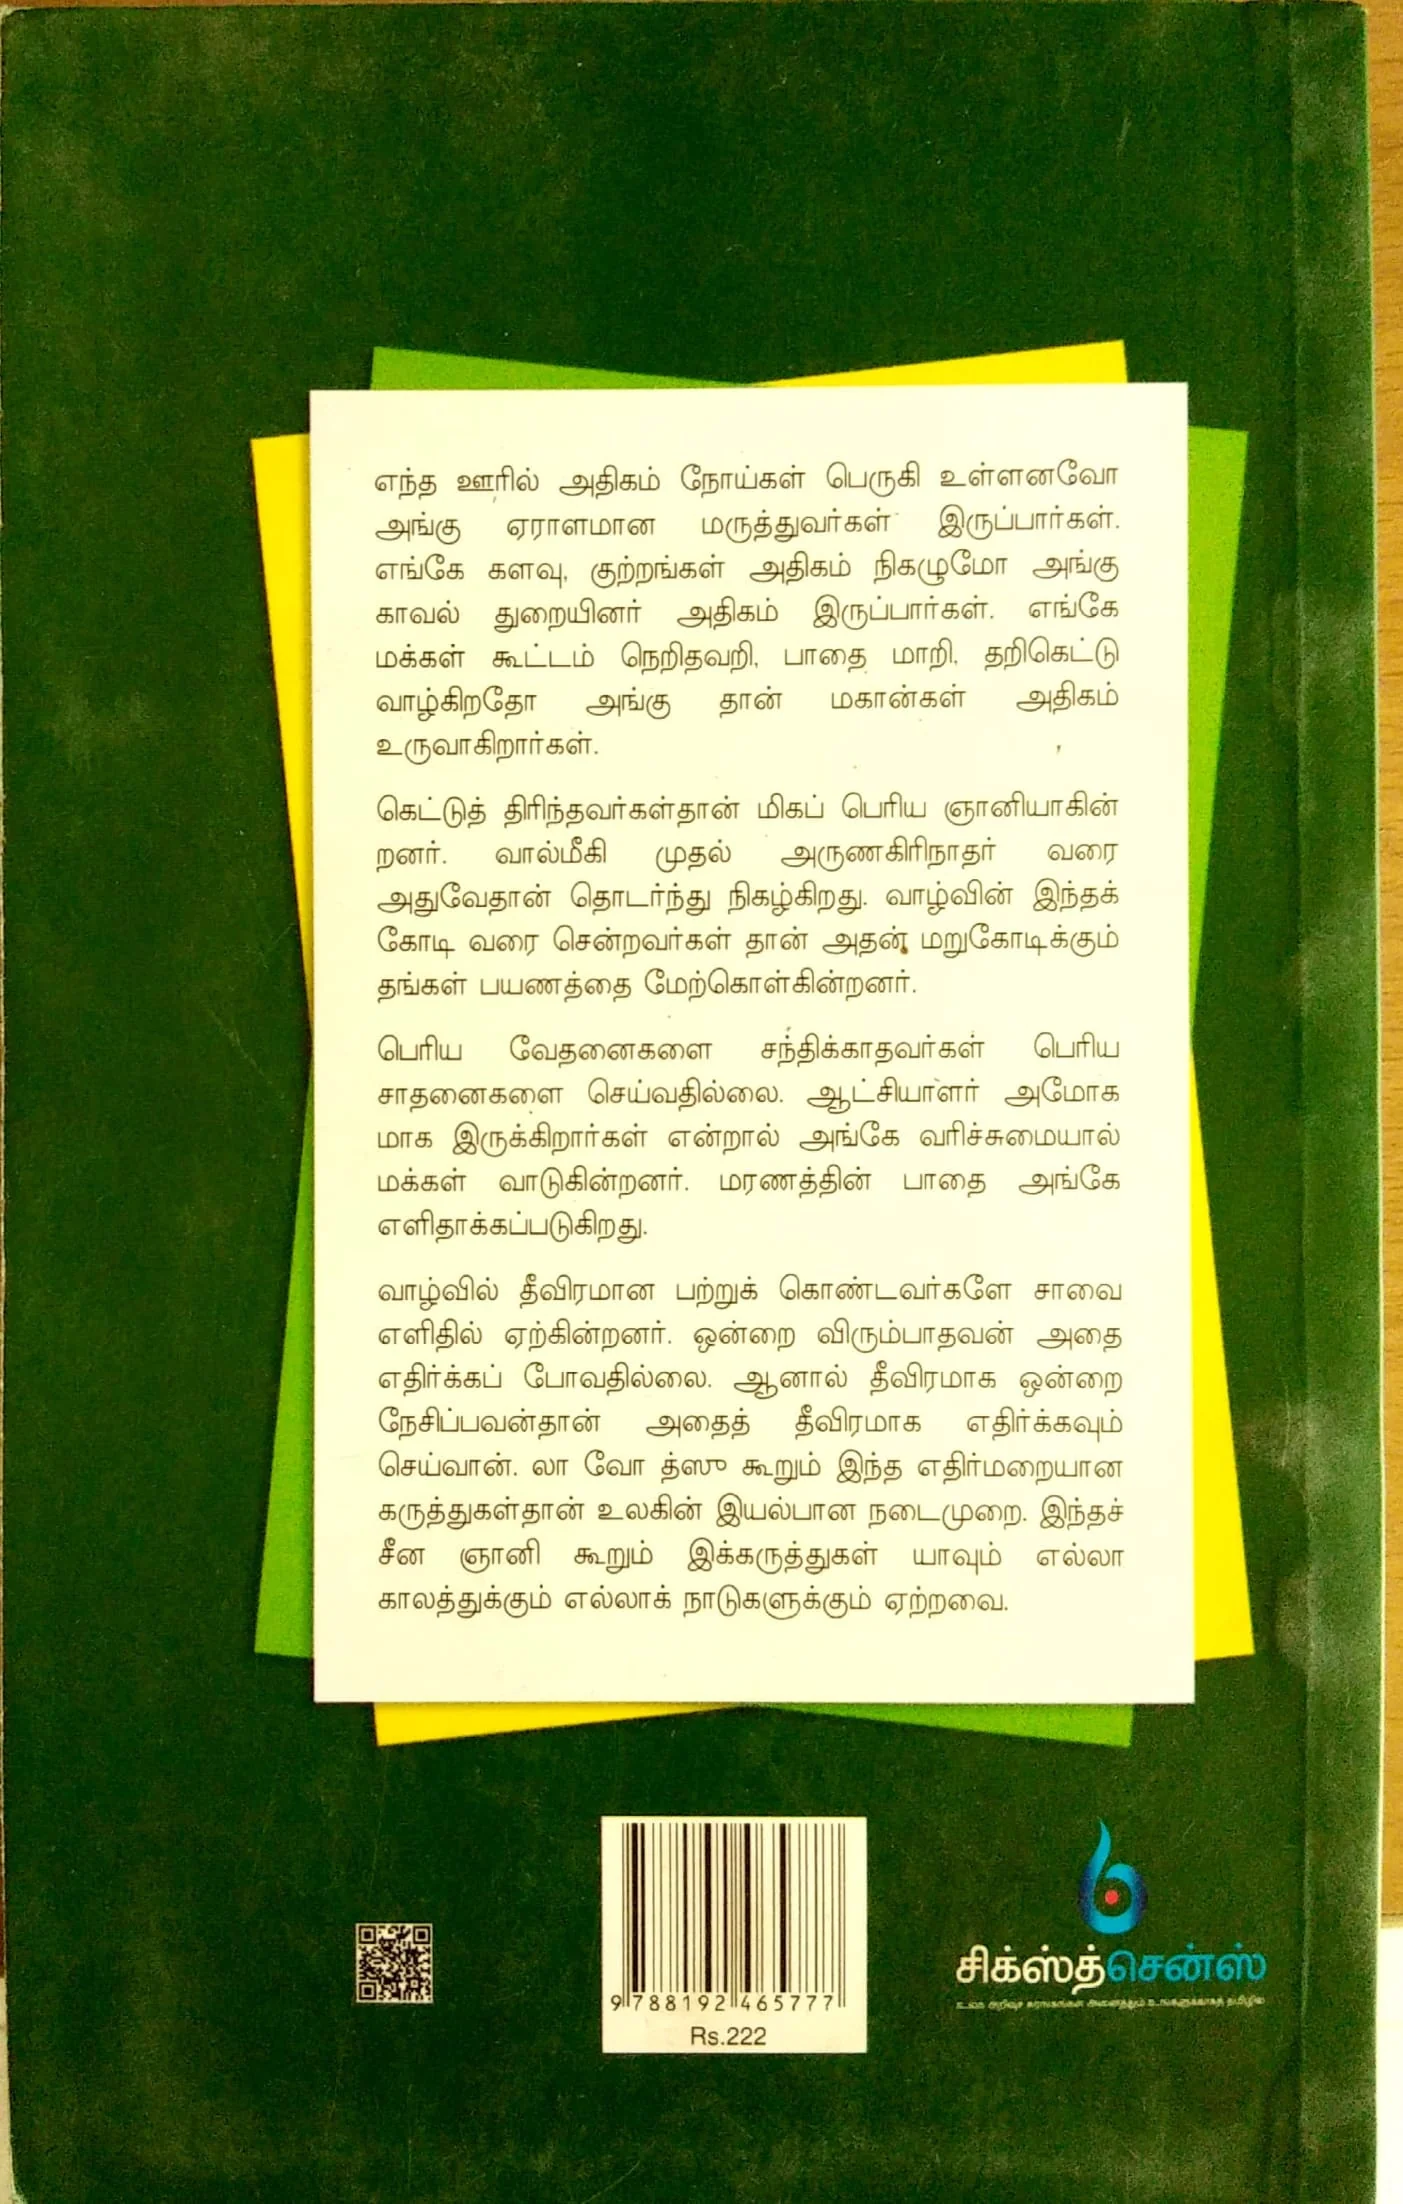 எந்த ஊரில் அதிகம் நோய்கள் பெருகி உள்ளனவோ
அங்கு ஏராளமான மருத்துவர்கள் இருப்பார்கள்.
எங்கே களவு, குற்றங்கள் அதிகம் நிகழுமோ அங்கு
காவல் துறையினர் அதிகம் இருப்பார்கள். எங்கே
மக்கள் கூட்டம் நெறிதவறி, பாதை மாறி, தறிகெட்டு
வாழ்கிறதோ அங்கு தான் மகான்கள் அதிகம்
உருவாகிறார்கள்.
கெட்டுத் திரிந்தவர்கள்தான் மிகப் பெரிய ஞானியாகின்
றனர். வால்மீகி முதல் அருணகிரிநாதர் வரை
அதுவேதான் தொடர்ந்து நிகழ்கிறது. வாழ்வின் இந்தக்
கோடி வரை சென்றவர்கள் தான் அதன் மறுகோடிக்கும்
தங்கள் பயணத்தை மேற்கொள்கின்றனர்.
பெரிய வேதனைகளை சந்திக்காதவர்கள் பெரிய
சாதனைகளை செய்வதில்லை. ஆட்சியாளர் அமோக
மாக இருக்கிறார்கள் என்றால் அங்கே வரிச்சுமையால்
மக்கள் வாடுகின்றனர். மரணத்தின் பாதை அங்கே
எளிதாக்கப்படுகிறது.
வாழ்வில் தீவிரமான பற்றுக் கொண்டவர்களே சாவை
எளிதில் ஏற்கின்றனர். ஒன்றை விரும்பாதவன் அதை
எதிர்க்கப் போவதில்லை. ஆனால் தீவிரமாக ஒன்றை
நேசிப்பவன்தான் அதைத் தீவிரமாக எதிர்க்கவும்
செய்வான். லா வோ த்ஸு கூறும் இந்த எதிர்மறையான
கருத்துகள்தான் உலகின் இயல்பான நடைமுறை. இந்தச்
சீன ஞானி கூறும் இக்கருத்துகள் யாவும் எல்லா
காலத்துக்கும் எல்லாக் நாடுகளுக்கும் ஏற்றவை.
9 788192 465777
Rs.222
சிக்ஸ்த்சென்ஸ்